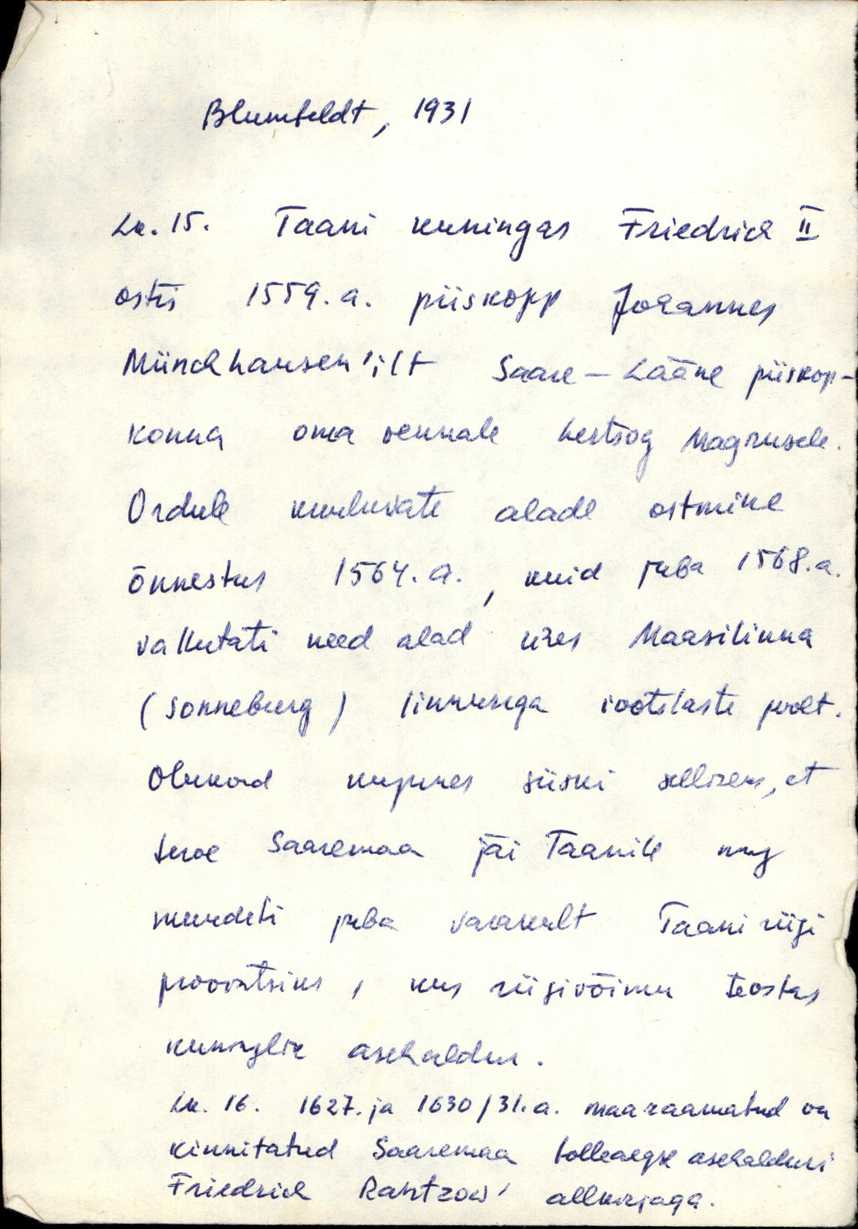 Blumfeldt, 1931
Lk. 15. Taani kuningas Friedrich II
ostis 1559. a. piiskopp Johannes
Münchhausen'ilt Saare-Lääne piiskop-
konna oma vennale hertsog Magnusele.
Ordule kuuluvate alade ostmine
õnnestus 1564. a., kuid juba 1568. a.
vallutati need alad ühes Maasilinna
(Sonneburg) linnusega rootslaste poolt.
Olukord kujunes siiski selliseks, et
terve Saaremaa jäi Taanile ning
muudeti juba varakult Taani riigi
provintsiks, kus riigivõimu teostas
kuninglik asehaldur.
Lk. 16. 1627. ja 1630/31. a. maaraamatud on
kinnitatud Saaremaa tolleaegse asehalduri
Friedrich Rantzow' allkirjaga.